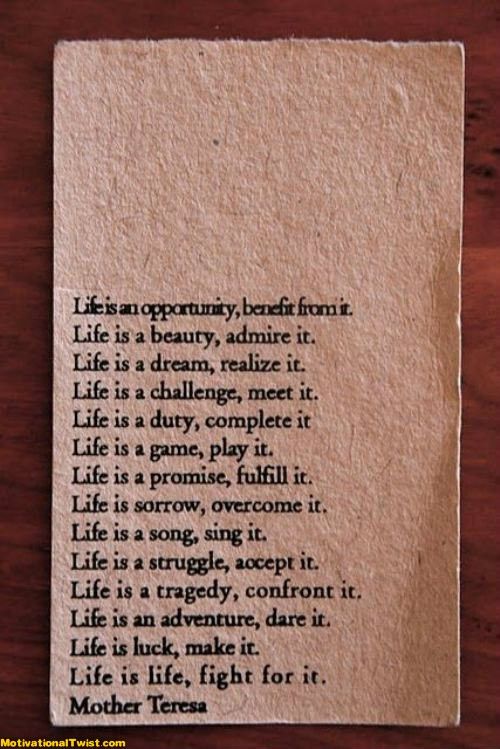 Life is an opportunity, benefit from it.
Life is a beauty, admire it.
Life is a dream, realize it.
Life is a challenge, meet it.
Life is a duty, complete it
Life is a game, play it.
Life is a promise, fulfill it.
Life is sorrow, overcome it.
Life is a song, sing it.
Life is a struggle, accept it.
Life is a tragedy, confront it.
Life is an adventure, dare it.
Life is luck, make it.
Life is life, fight for it.
Mother Teresa
MotivationalTwist.com